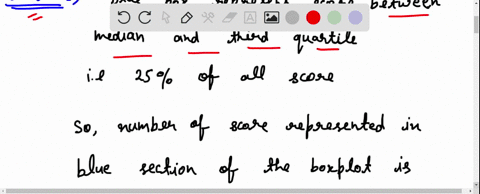 between
median and third quartile
i.e 25% of all score
So, number of score represented in
blue section of the boxplot is